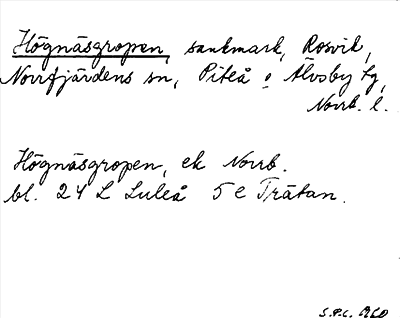 Högnäsgropen, sankmark, Rosvik,
Norrfjärdens sn, Piteå o Älvsby tg,
Norrb. l.
Högnäsgropen, ek Norrb.
bl. 24 L Luleå 5 e Trätan.
1960